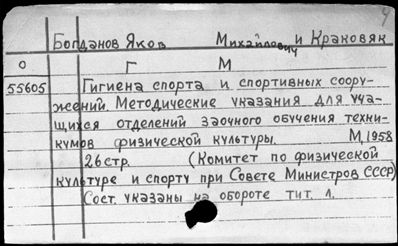 4
Богданов Яков Михайлович и Краковяк
О Г М
55605 Гигиена спорта и спортивных соору-
жений. Методические указания для уча-
щихся отделений заочного обучения техни-
кумов физической культуры. М, 1958
26 стр. (Комитет по физической
культуре и спорту при Совете Министров СССР)
Сост. указаны на обороте тит. л.